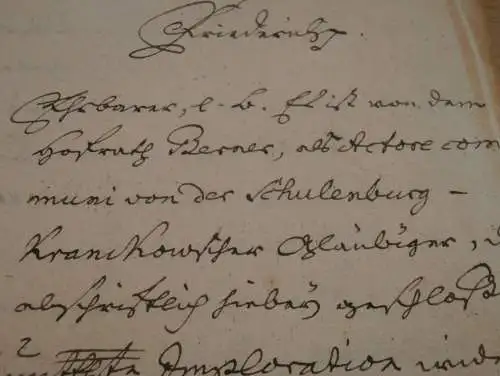 Friederich p.
Ehrbarer, l. b. Es ist von dem
Hofrath Berner, als Actore com
muni von der Schulenburg-
Kranckowscher Gläubiger,
abschriftlich hiebey geschloß
2
Imploration wide